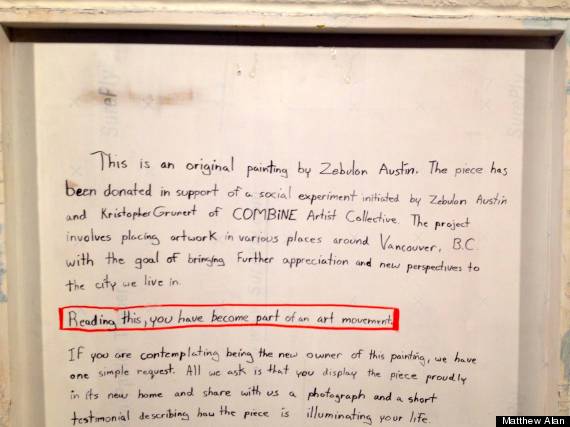 This is an original painting by Zebulon Austin. The piece has
been donated in support of a social experiment initiated by Zebulon Austin
and Kristopher Grunert of COMBiNE Artist Collective. The project
involves placing artwork in various places around Vancouver, B.C.
with the goal of bringing further appreciation and new perspectives to
the city we live in.
Reading this, you have become part of an art movement.
IF you are contemplating being the new owner of this painting, we have
one simple request. All we ask is that you display the piece proudly
in its new home and share with us a photograph and a short
testimonial describing how the piece is illuminating your life.
Matthew Alan